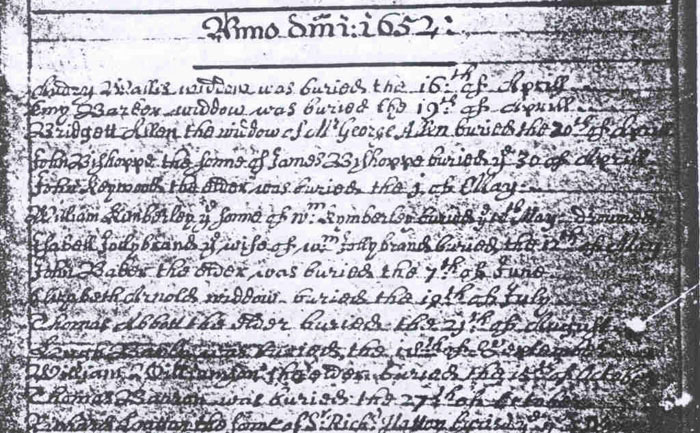 Anno dm̃i: 1652:
Audry Wallis widdow was buried the 16th of Aprill
Emy Barker widdow was buried the 19th of Aprill
Bridgett Allen the widdow of Mr George Allen buried the 20th of Aprill
John Byshoppe the sonne of James Byshoppe buried ye 30 of Aprill
John Heywood the elder was buried the j of May
William Kimberley ye sonne of Wm Kymberley buried ye May drowned
Isabell Jollybrand ye wife of Wm Jollybrand buried the 12th of May
John Baker the elder was buried the 7th of June
Elizabeth Arnold widdow buried the 19th of July
Thomas Abbott the elder buried the 21th of August
Hugh was buried the of September
William Williamson the elder buried the 15th of October
Thomas was buried the 27th of October
the sonne of Sr Rich: buried ye